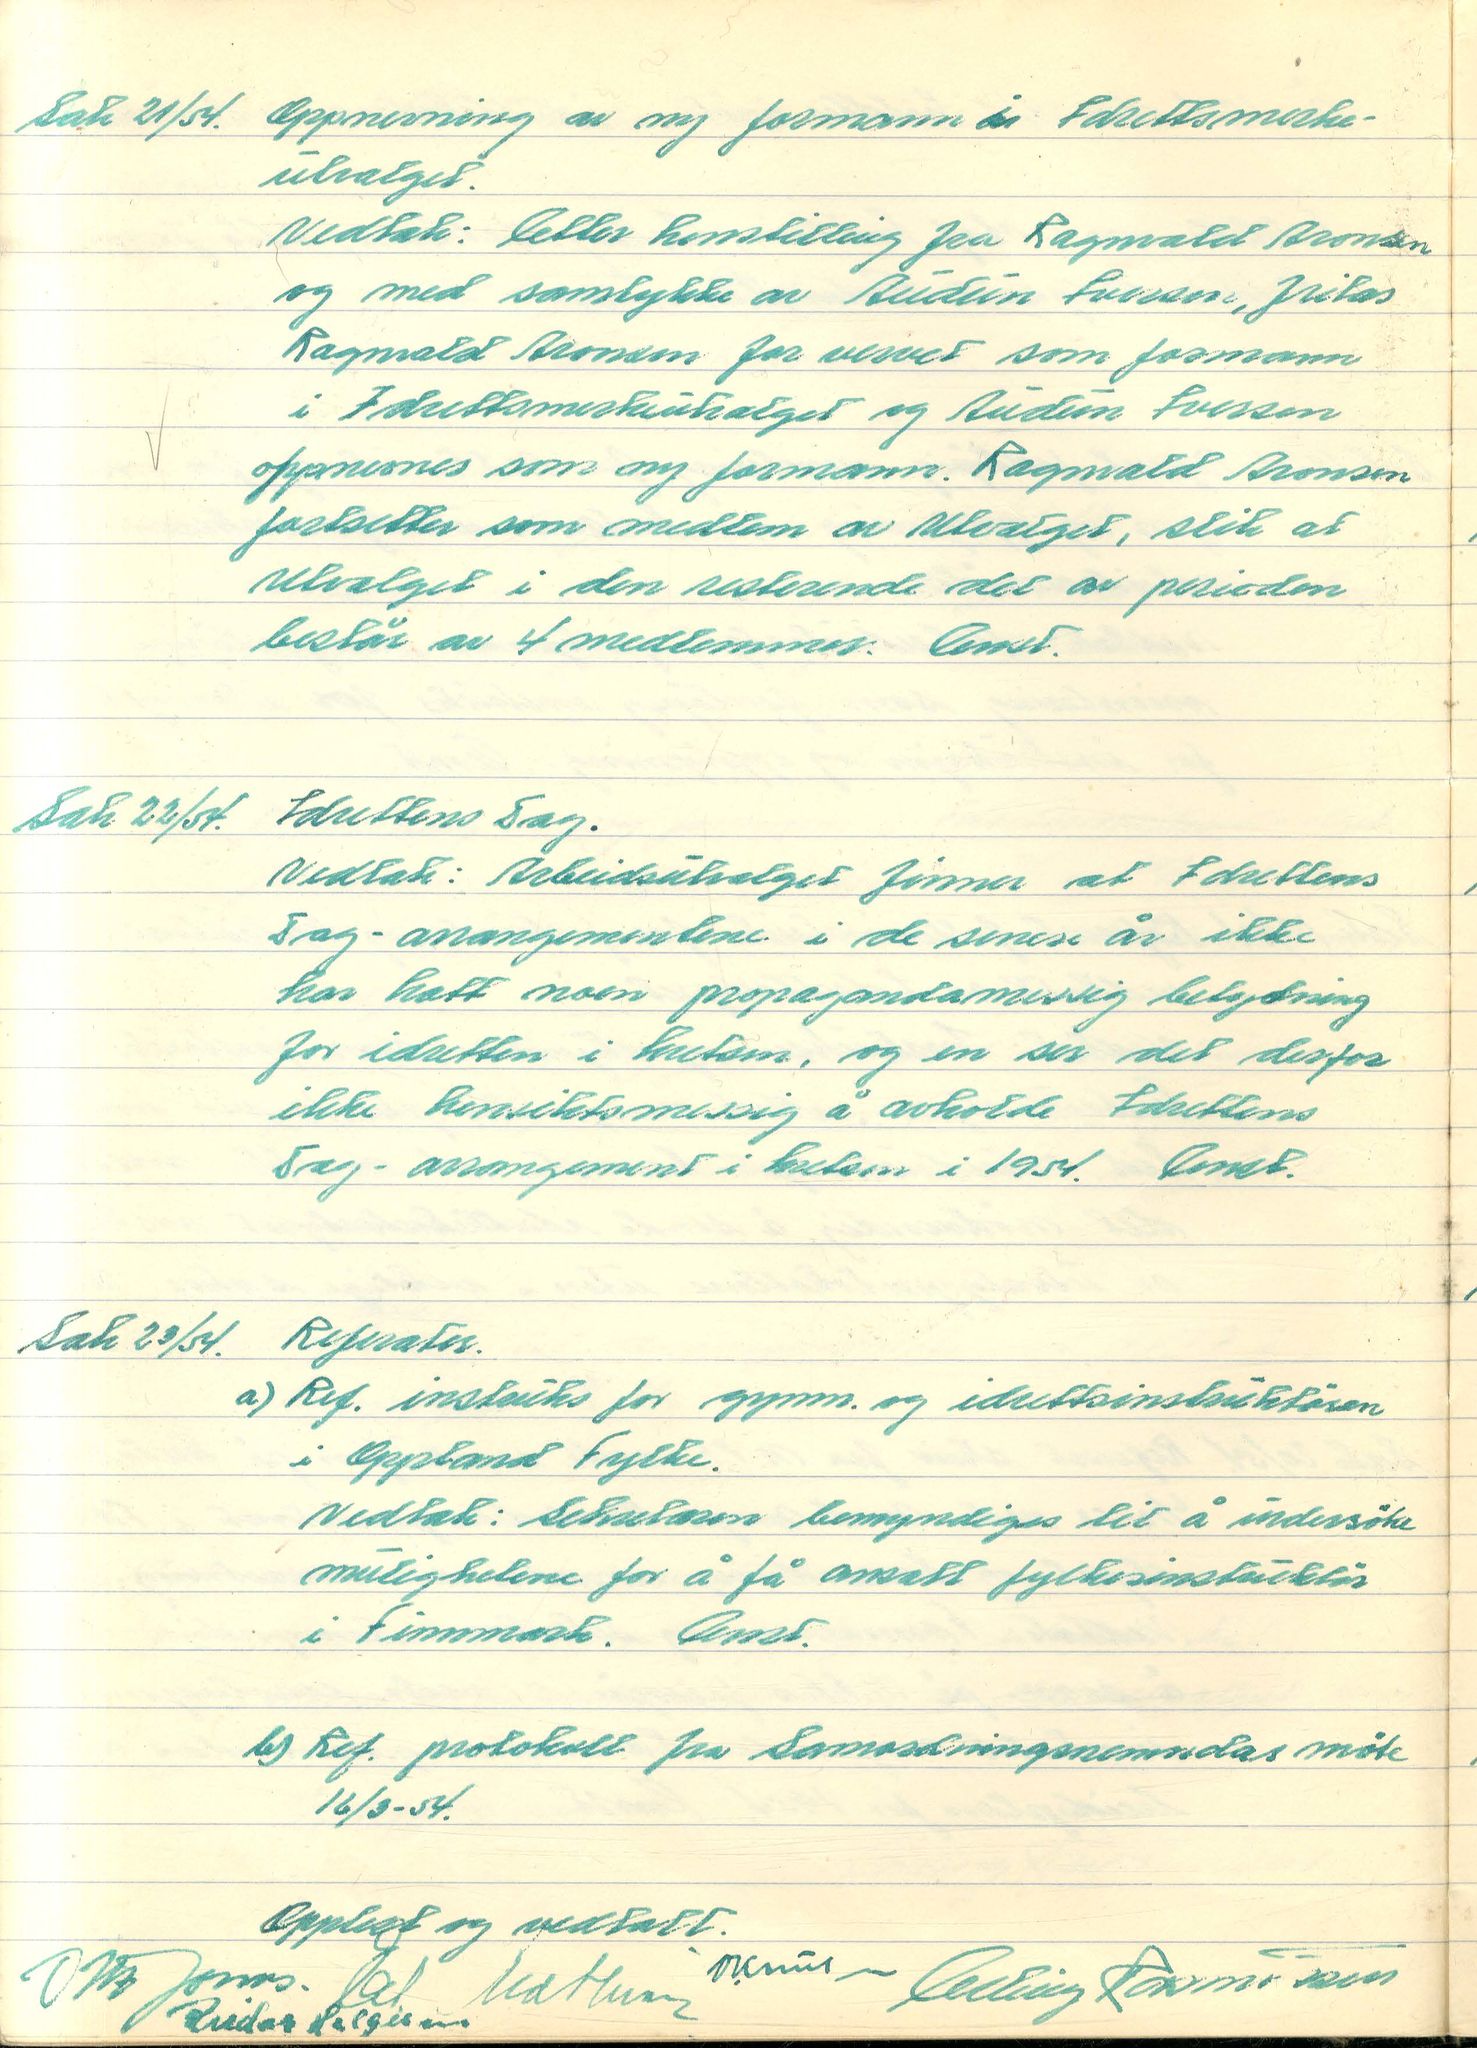 Sak 21/54. Oppnevning av ny formann i Idrettsmerke-
utvalget.
Vedtak: Etter henstilling fra Ragnvald Aronsen
og med samtykke av Audun Iversen, fritas
Ragnvald Aronsen for vervet som formann
i Idrettsmerkeutvalget og Audun Iversen
oppnevnes som ny formann. Ragnvald Aronsen
fortsetter som medlem av Utvalget, slik at
Utvalget i den resterende del av perioden
består av 4 medlemmer. Enst.
Sak 22/54. Idrettens Dag.
Vedtak: Arbeidsutvalget finner at Idrettens
Dag-arrangementene i de senere år ikke
har hatt noen propagandamessig betydning
for idretten i kretsen, og en ser det derfor
ikke hensiktsmessig å avholde Idrettens
Dag-arrangement i kretsen i 1954. Enst.
Sak 23/54. Referater.
a) Ref. instruks for gymn. og idrettsinstruktøren
i Oppland Fylke.
Vedtak: Sekretæren bemyndiges til å undersøke
mulighetene for å få ansatt fylkesinstruktør
i Finnmark. Enst.
b) Ref. protokoll fra Samordningsnemndas møte
16/3-54.
Opplest og vedtatt.